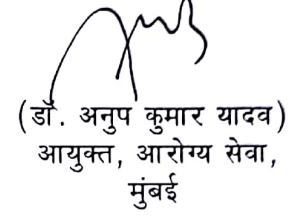 (डॉ. अनुप कुमार यादव)
आयुक्त, आरोग्य सेवा,
मुंबई